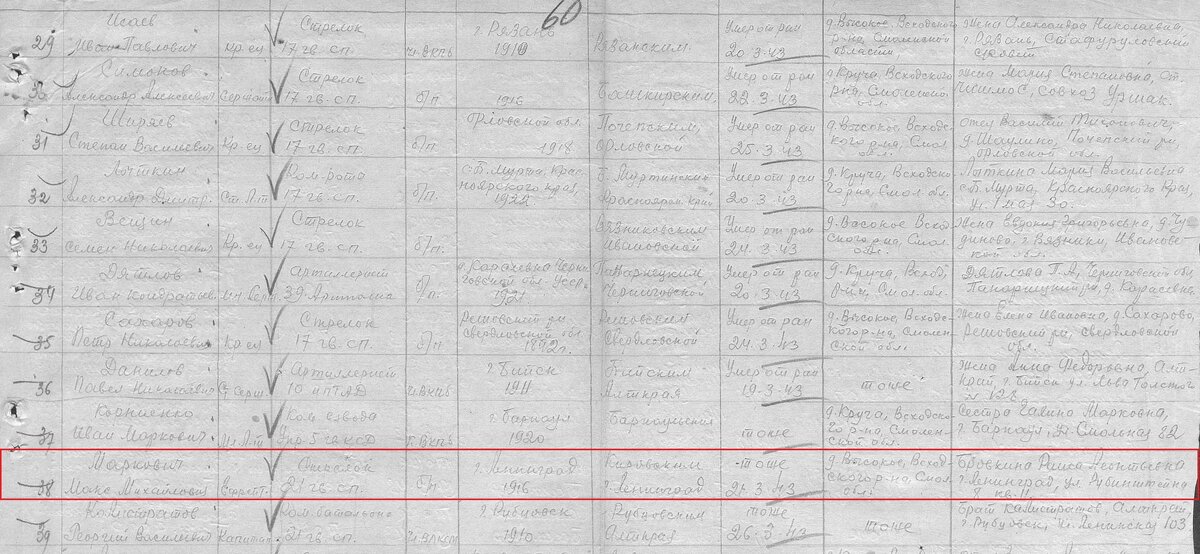 60
29 Исаев Иван Павлович кр-ец Стрелок 17 гв. сп. чл. ВКПб г. Рязань 1910 Рязанским Умер от ран 20.3.43 д. Высокое, Всходского р-на, Смоленской области Жена Александра Николаевна, г. Рязань,
30 Симонов Александр Алексеевич Сержант Стрелок 17 гв. сп. б/п 1916 Башкирским, Умер от ран 22.3.43 д. Круча, Всходского р-на, Смоленск. обл. Жена Мария Степановна, ст. Чишмы, совхоз Уршак.
31 Ширяев Степан Васильевич Кр-ец Стрелок 17 гв. сп. б/п Орловской обл. 1918 Почепским, Орловской Умер от ран 25.3.43 д. Высокое, Всходского р-на, Смол. обл. отец Василий д. Шаулино, Почепский р-н, Орловской обл.
32 Александр Дмитр. Ст. Л-т Ком. рота 17 гв. сп. б/п ст. Мурта, Красноярского края, 1922 Б. Муртинским Красноярск. край Умер от ран 20.3.43 д. Круча, Всходского р-на, Смол. обл. Мария Васильевна ст. Мурта, Красноярского края, ул. 1 мая 30.
33 Вещин Семен Николаевич Кр-ец Стрелок 17 гв. сп. б/п Вязниковским Ивановской Умер от ран 24.3.43 д. Высокое Всходского р-на, Смол. обл. Жена Евдокия Григорьевна, д. Чудиново, г. Вязники, Ивановской обл.
34 Дятлов Иван Кондратьев. мл. Серж. Артиллерист б/п. 1921 Черниговской Умер от ран 20.3.43 д. Круча, Всход. р-н, Смол. обл. Дятлова Т.А, Черниговской обл.
35 Сахаров Петр Николаевич Кр-ец Стрелок 17 гв. сп. б/п Свердловской обл 1892г. Свердловской Умер от ран 24.3.43 д. Высокое, Всходского р-на, Смоленской обл. Жена Елена Ивановна, д. Сахарово, Свердловской обл.
36 Данилов Павел Николаевич Ст. серж. Артиллерист 10 ИПТАД чл. ВКПб г. Бийск 1911 Бийским Алткрая Умер от ран 19.3.43 тоже Жена Анна Федоровна, Алт-край, г. Бийск ул. Льва Толстого № 128
37 Корниенко Иван Маркович мл. Л-т Ком. взвода г. Барнаул 1920 Барнаульским тоже д. Круча, Всходского р-на, Смоленской обл. Сестра Галина Марковна, г. Барнаул, ул. Смольная 82
38 Маркович Макс Михайлович Ефрейт. 21 гв. сп. б/п г. Ленинград 1916 Кировским г. Ленинград тоже 21.3.43 д. Высокое, Всходского р-на, Смол. обл. Бровкина Раиса Леонтьевна г. Ленинград, ул. Рубинштейна
39 Калистратов Георгий Васильевич Капитан Ком. батальона 21 гв. сп. чл. ВКПб г. Рубцовск 1910 Рубцовским Алткрая тоже 26.3.43 тоже Брат Калистратов, Алткрай, г. Рубцовск, ул. Ленинская 103